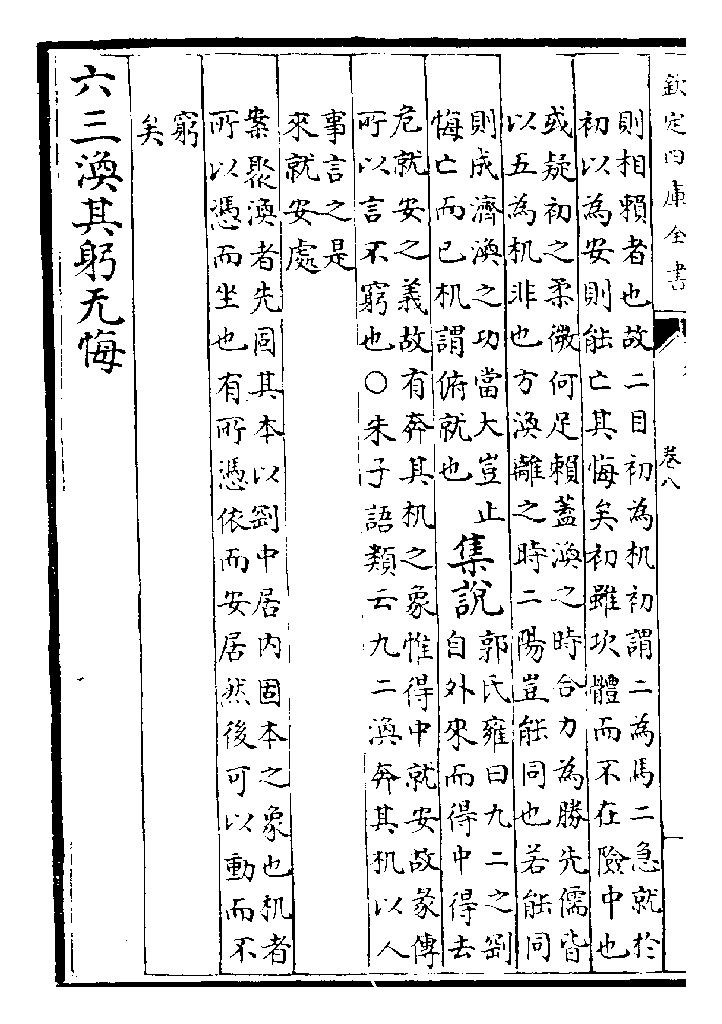 欽定四庫全書
卷八
則相賴者也故二目初為机初謂二為馬二急就於
初以為安則能亡其悔矣初雖坎體而不在險中也
或疑初之柔微何足賴蓋渙之時合力為勝先儒皆
以五為机非也方渙離之時二陽豈能同也若能同
則成濟渙之功當大豈止
悔亡而已机謂俯就也
集說
郭氏雍曰九二之剛
自外來而得中得去
危就安之義故有奔其机之象惟得中就安故彖傳
所以言不窮也○朱子語類云九二渙奔其机以人
事言之是
來就安處
案聚渙者先固其本以劉中居内固本之象也机者
所以憑而坐也有所憑依而安居然後可以動而不
窮
矣
六三渙其躬无悔